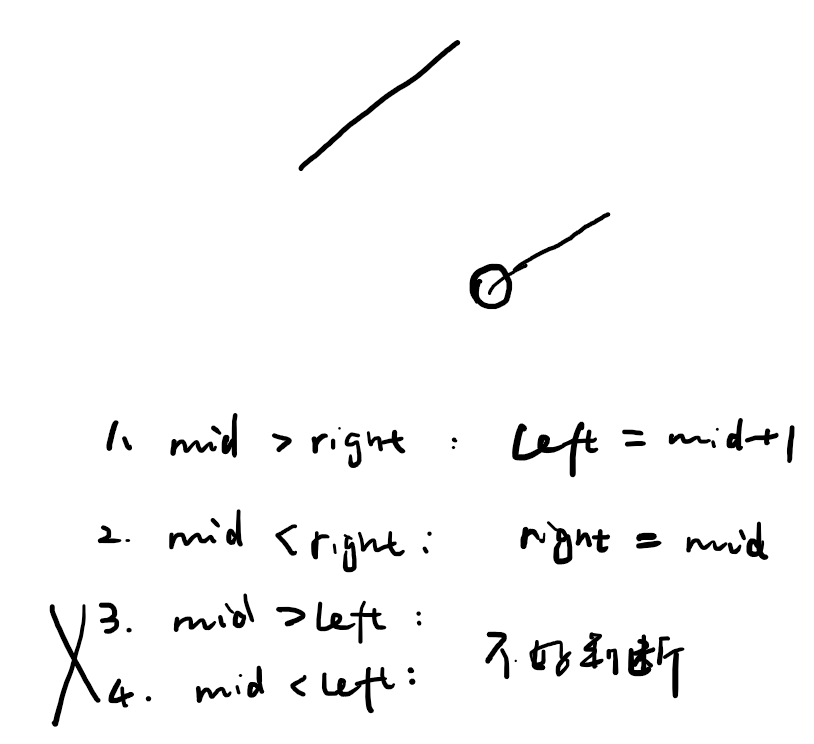 1、 mid > right : left = mid+1
2. mid < right : right = mid
3. mid > left :
4. mid < left :
不好判断